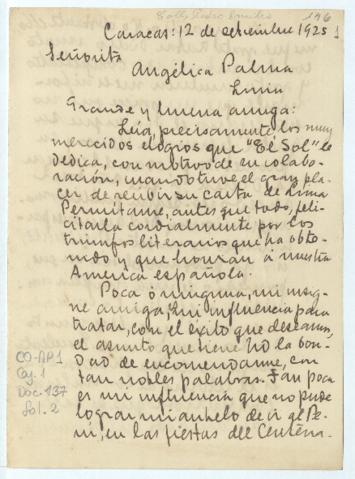 146
1
Caracas: 12 de setiembre 1925
Señorita
Angélica Palma
Lima
Grande y buena amiga:
Leía, precisamente, los muy
merecidos elogios que "El Sol" le
dedica, con motivo de su colabo-
ración, cuando tuve el gran pla-
cer de recibir su carta de Lima
Permítame, antes que todo, feli-
citarla cordialmente por los
triunfos literarios que ha obte-
nido y que honran á nuestra
América española.
Poca ó ninguna, mi insig-
ne amiga, mi influencia para
tratar, con el éxito que deseamos,
el asunto que tiene Ud la bon-
dad de encomendarme, con
tan nobles palabras. Tan poca
es mi influencia que no pude
lograr mi anhelo de ir al Pe-
rú, en las fiestas del Centena-
CO-AP1
Caj. 1
Doc. 137
Fol. 2